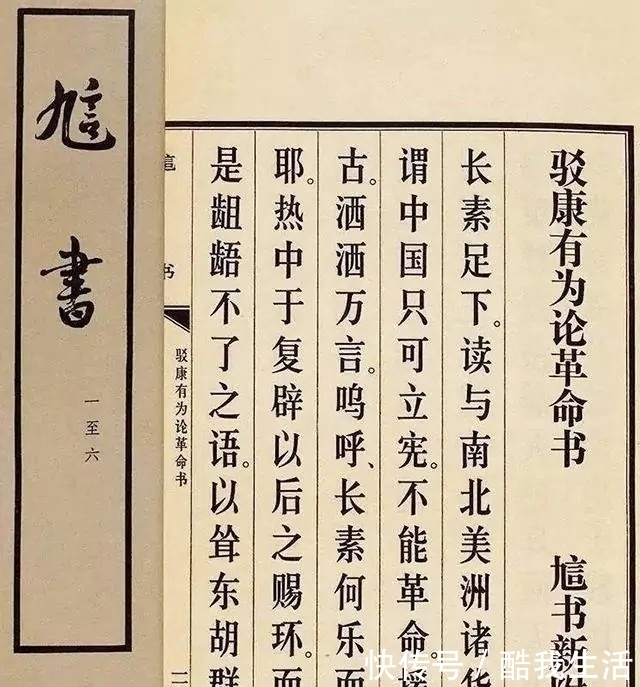 訄書
一至六
驳康有为论革命书
訄书新
长素足下。读与南北美洲诸华
谓中国只可立宪。不能革命。援
古。洒洒万言。呜呼、长素何乐而
耶。热中于复辟以后之赐环。而
是龃龉不了之语。以耸东胡群
书
驳康有为论革命书
快传号 / 酷我生活